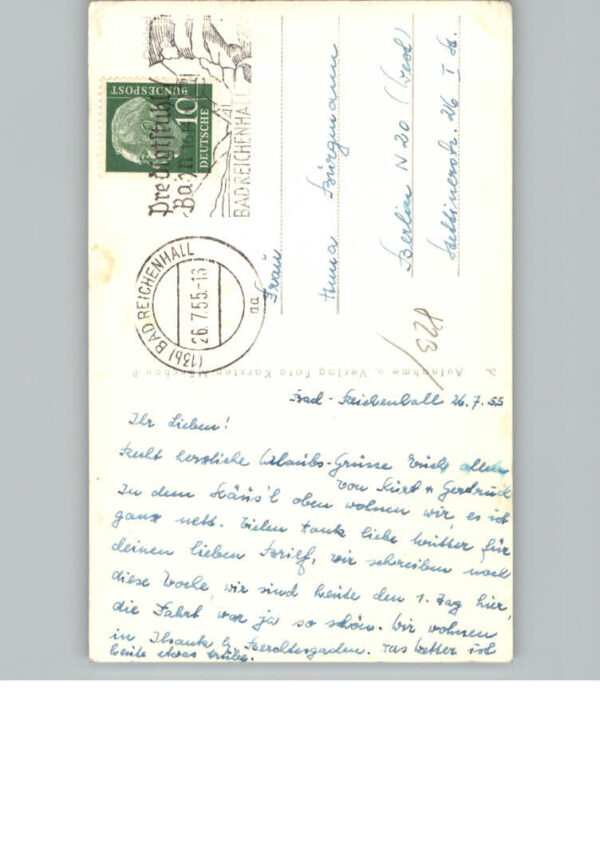 DEUTSCHE
BUNDESPOST
10
Predigtstuhl
Bahn
BAD REICHENHALL
(13b) BAD REICHENHALL
26.7.55.-18
aa
Frau
Anna Bürgmann
Berlin N 20 (West)
Stettinerstr. 26 I
Aufnahme u. Verlag Foto Karsten München
Bad-Reichenhall 26.7.55
Ihr Lieben!
Recht herzliche Urlaubs-Grüsse Euch allen
von Kurt u. Gertrud
In dem Häus'l oben wohnen wir, es ist
ganz nett. Vielen Dank liebe Mutter für
deinen lieben Brief, wir schreiben noch
diese Woche, wir sind heute den 1. Tag hier,
die Fahrt war ja so schön. Wir wohnen
in Ilsank b. Berchtesgaden. Das Wetter ist
heute etwas trübe.